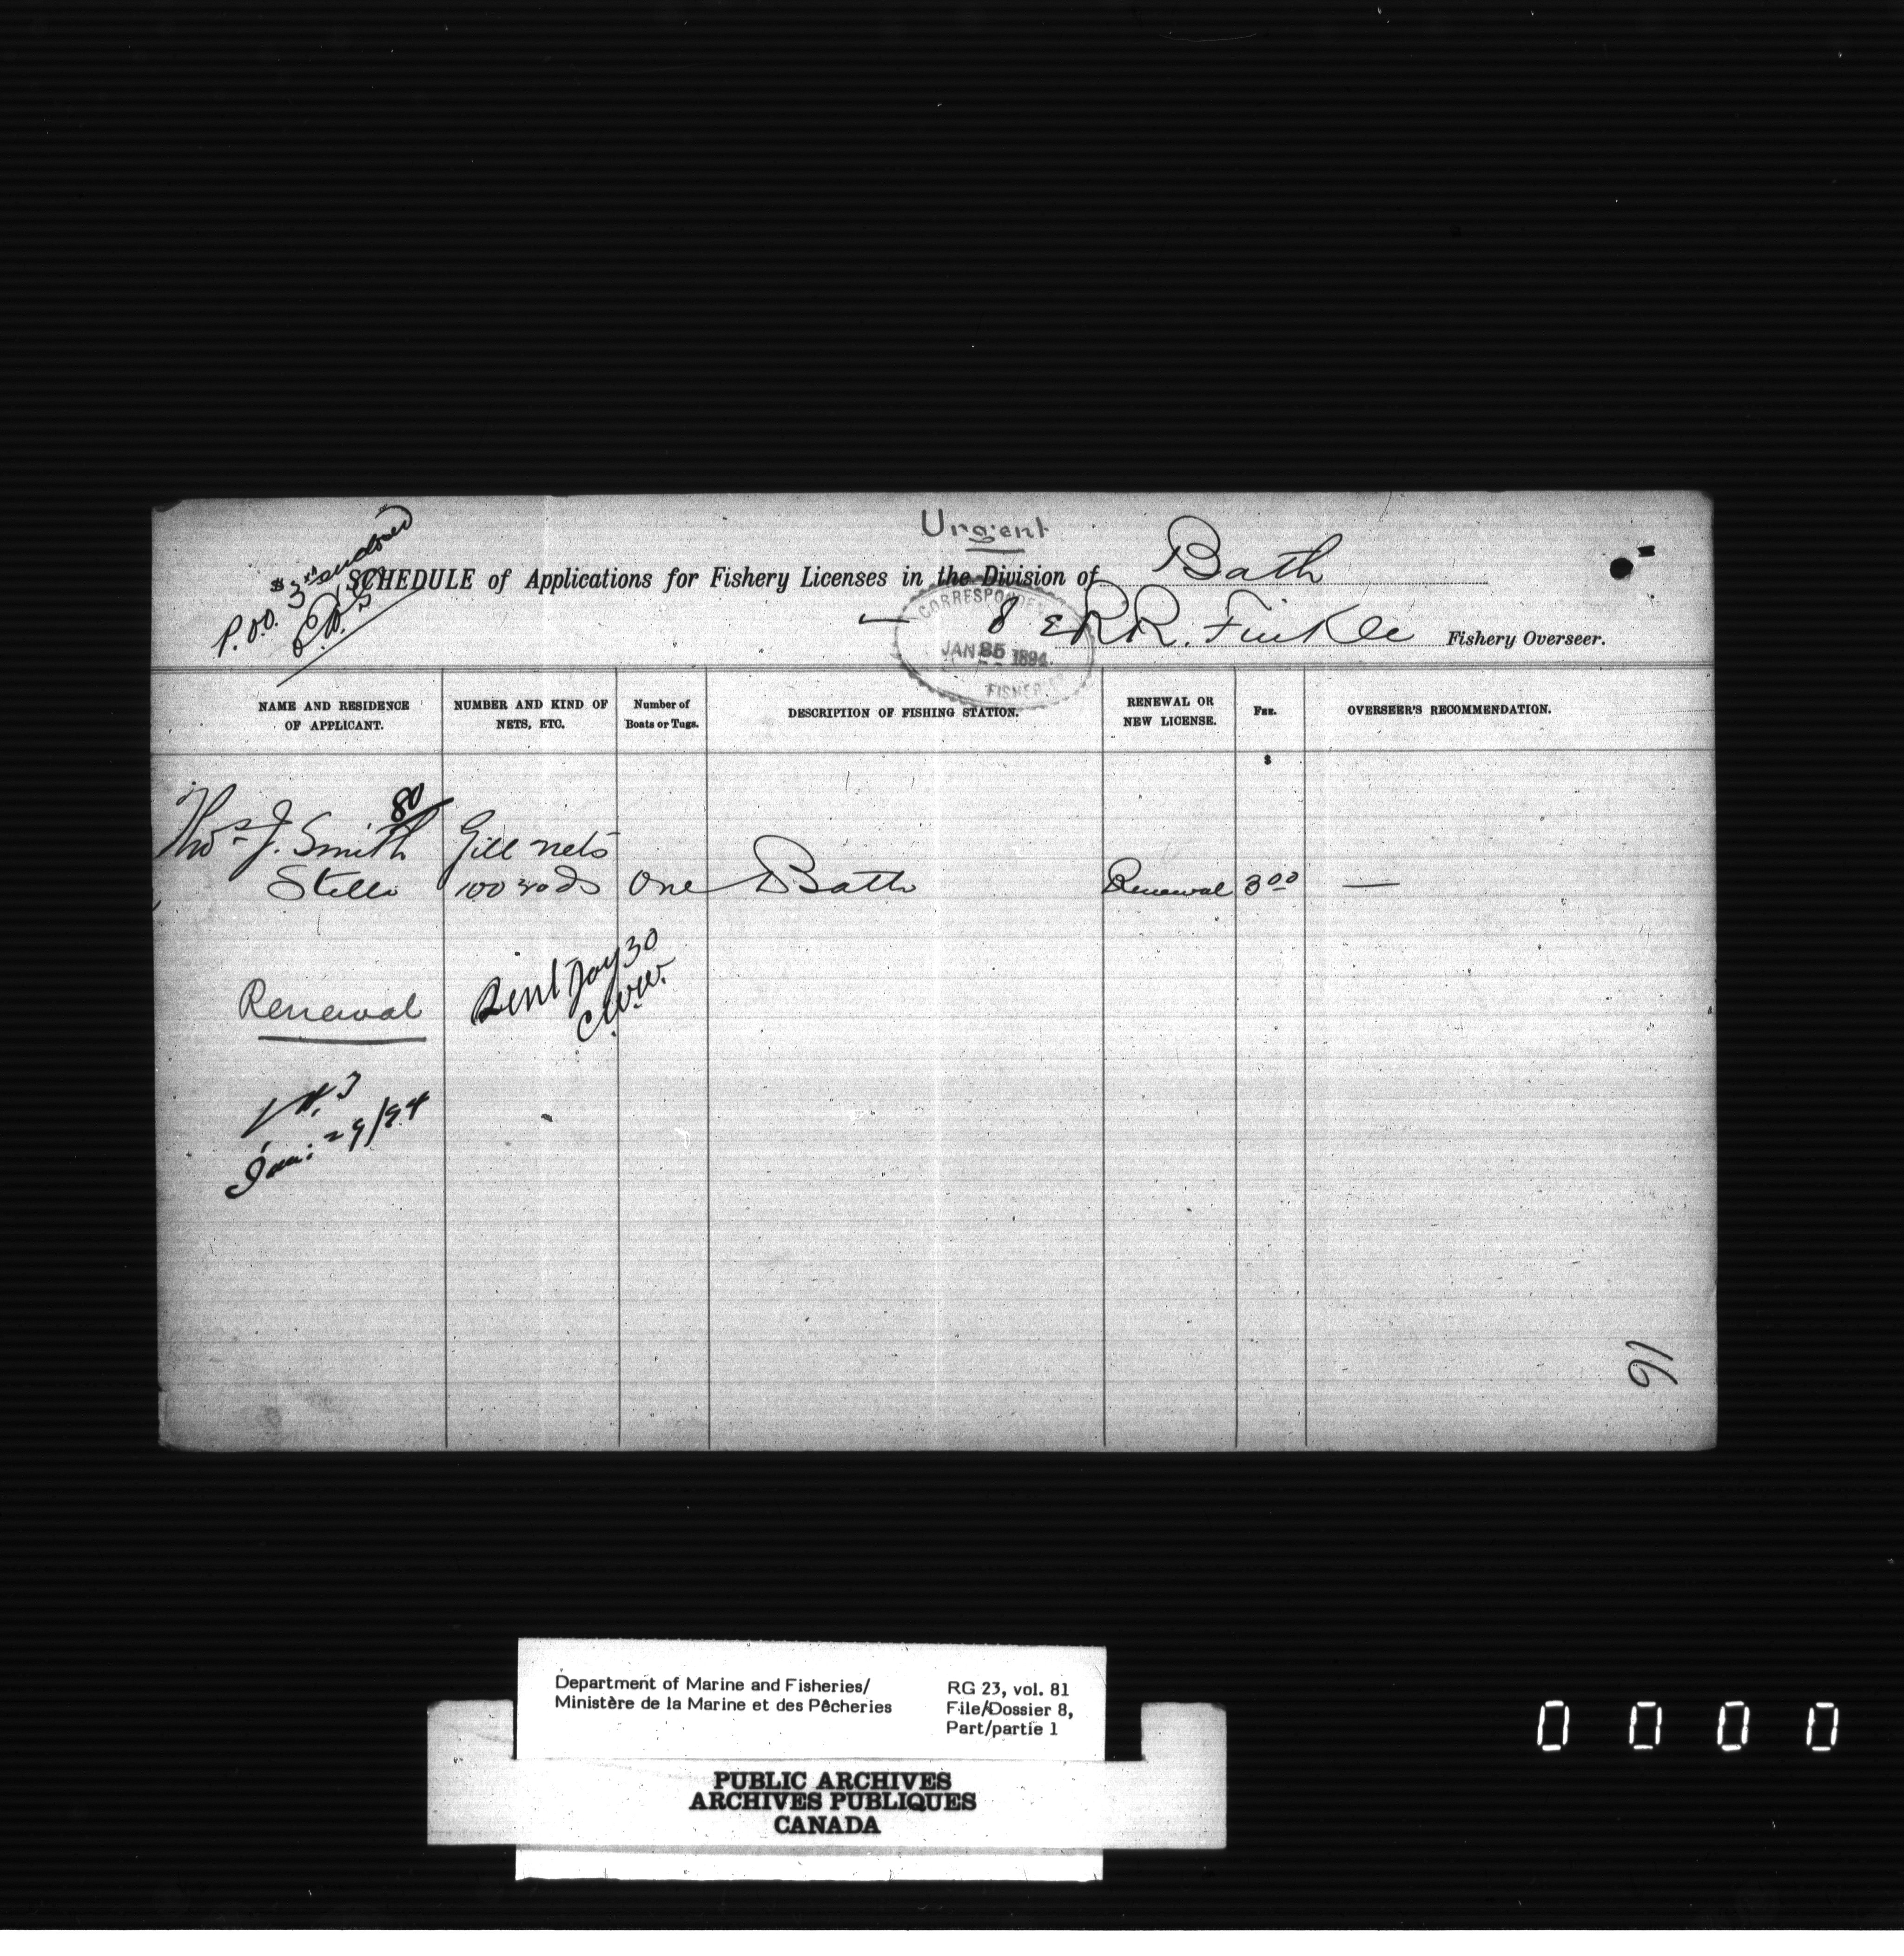 Urgent
P.O.O. $3.00 endorsed
SCHEDULE of Applications for Fishery Licenses in the Division of Bath
8 R R. Finkle Fishery Overseer.
CORRESPONDEN
JAN 25 1894.
FISHERIES
NAME AND RESIDENCE OF APPLICANT.
NUMBER AND KIND OF NETS, ETC.
Number of Boats or Tugs.
DESCRIPTION OF FISHING STATION.
RENEWAL OR NEW LICENSE.
FEE.
OVERSEER'S RECOMMENDATION.
$
80
Thos J. Smith Gill nets
Stella 100 rods One Bath Renewal 3 00 —
Renewal
Sent Jay 30
C.W.W.
Jan: 29/94
91
Department of Marine and Fisheries/
Ministère de la Marine et des Pêcheries
RG 23, vol. 81
File/Dossier 8,
Part/partie 1
PUBLIC ARCHIVES
ARCHIVES PUBLIQUES
CANADA
0 0 0 0